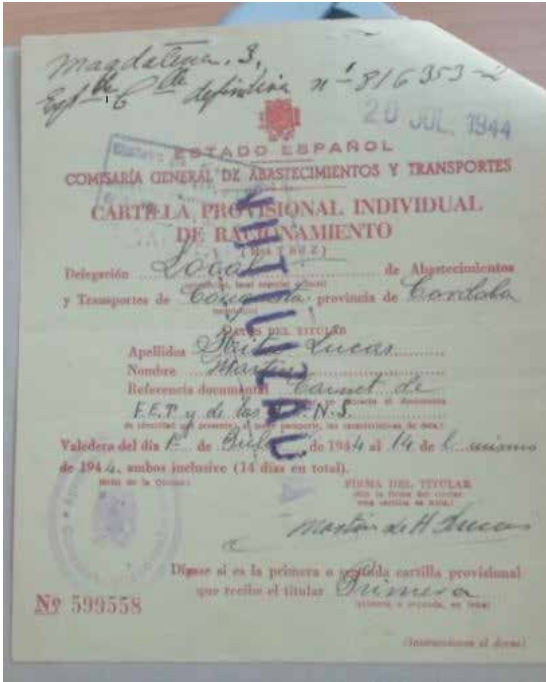 Magdalena, 3,
definitiva nº 816353-2
20 JUL. 1944
ESTADO ESPAÑOL
COMISARÍA GENERAL DE ABASTECIMIENTOS Y TRANSPORTES
CARTILLA PROVISIONAL INDIVIDUAL
DE RACIONAMIENTO
INUTILIZADO
Delegación Local de Abastecimientos
y Transportes de Conquista, provincia de Cordoba
DATOS DEL TITULAR
Apellidos Lucas
Nombre Martin
Referencia documental Carnet de
F.E.T. y de las J.O.N.S.
Valedera del día 1º de Julio de 1944 al 14 de mismo
de 1944, ambos inclusive (14 días en total).
FIRMA DEL TITULAR
Martín de H Lucas
Dígase si es la primera o segunda cartilla provisional
que recibe el titular Primera
(primera o segunda, en letra)
Nº 599558
(Instrucciones al dorso)